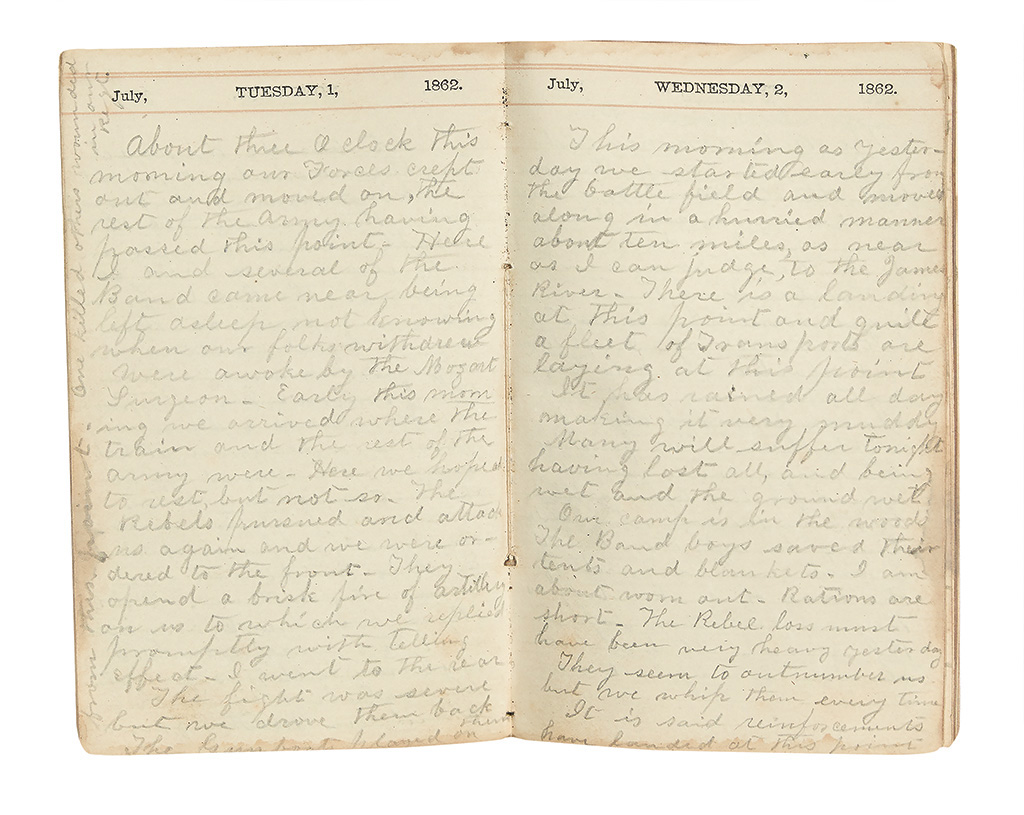 July, TUESDAY, 1, 1862.
About three O clock this
morning our Forces crept
out and moved on, the
rest of the Army having
passed this point - Here
I and several of the
Band came near being
left asleep not knowing
when our folks withdrew
Were awoke by the Mozart
Surgeon - Early this morn
ing we arrived where the
train and the rest of the
army were - Here we hoped
to rest, but not so - The
Rebels pursued and attack
us again and we were or-
dered to the front - They
opend a brisk fire of artillery
on us to which we replied
promptly with telling
effect - I went to the rear
The fight was severe
but we drove them back
The Gun boat played on them
from this point.
One killed others wounded
in our
Regt.
July, WEDNESDAY, 2, 1862.
This morning as yester-
day we started early from
the battle field and moved
along in a hurried manner
about ten miles, as near
as I can judge, to the James
River - There is a landing
at this point and quilt
a fleet of Transports are
laying at this point
It has rained all day
making it very muddy
Many will suffer tonight
having lost all, and being
wet and the ground wet
Our camp is in the woods
The Band boys saved their
tents and blankets - I am
about worn out - Rations are
short - The Rebel loss must
have been very heavy yesterday
They seem to outnumber us
but we whip them every time
It is said reinforcements
have landed at this point